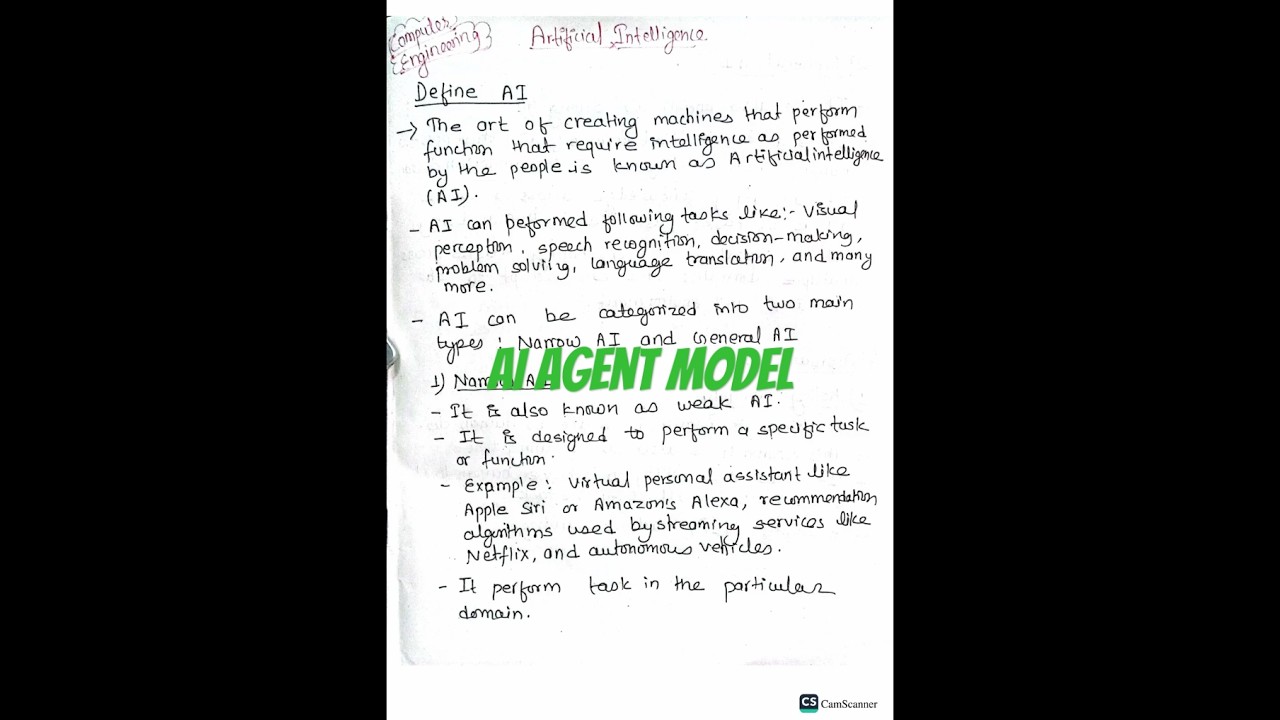 Computer
Engineering
Artificial Intelligence
Define AI
→ The art of creating machines that perform
function that require intelligence as performed
by the people is known as Artificial intelligence
(AI).
- AI can peformed following tasks like:- Visual
perception, speech recognition, decision-making,
problem solving, language translation, and many
more.
- AI can be categorized into two main
types : Narrow AI and General AI
AI AGENT MODEL
1) Narrow AI
- It is also known as weak AI.
- It is designed to perform a specific task
or function.
- Example : Virtual personal assistant like
Apple Siri or Amazon's Alexa, recommendation
algorithms used by streaming services like
Netflix, and autonomous vehicles.
- It perform task in the particular
domain.
CS CamScanner